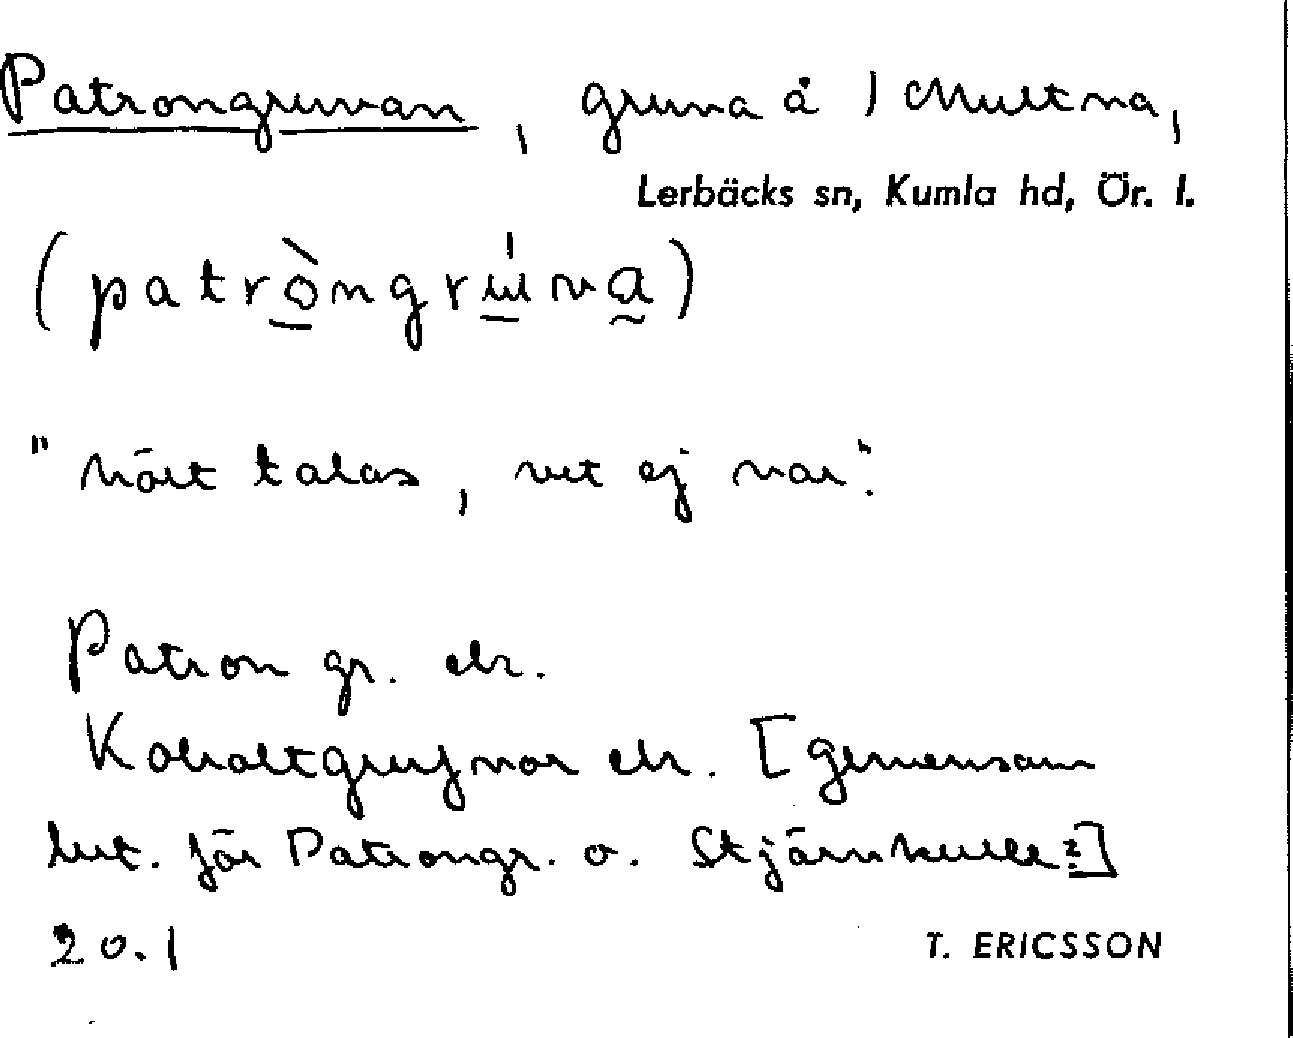 Patrongruvan, gruva å 1 Multna,
Lerbäcks sn, Kumla hd, Ör. l.
(patròngrúva)
"hört talas, vet ej var".
Patron gr. ek.
Koboltgrufvor ek. [gemensam
bet. för Patrongr. o. Stjärnkulle2]
20.1
T. ERICSSON